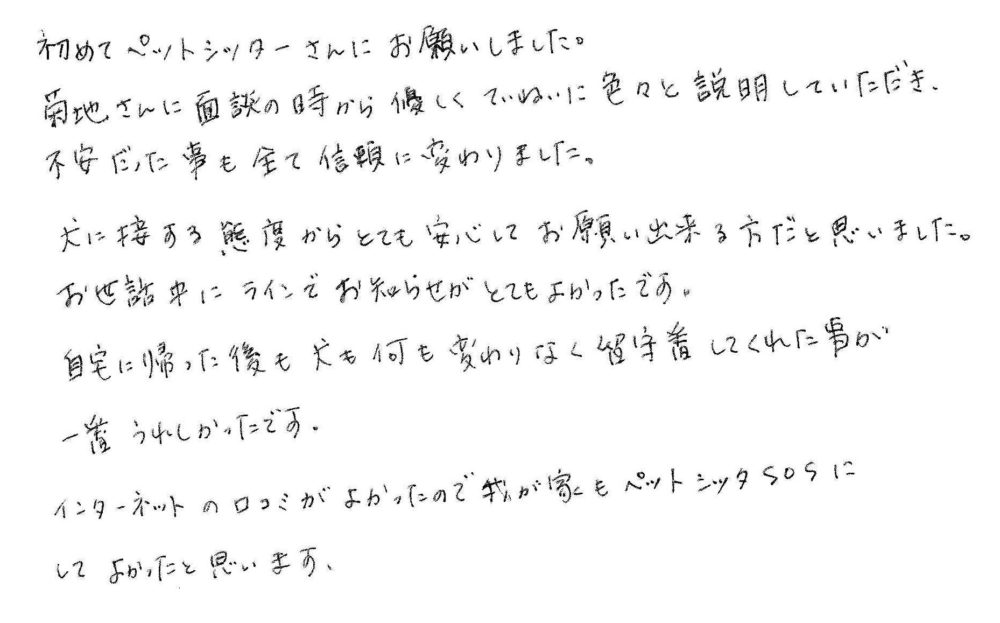 初めてペットシッターさんにお願いしました。
菊地さんに面談の時から優しくていねいに色々と説明していただき、
不安だった事も全て信頼に変わりました。
犬に接する態度からとても安心してお願い出来る方だと思いました。
お世話中にラインでお知らせがとてもよかったです。
自宅に帰った後も犬も何も変わりなく留守番してくれた事が
一番うれしかったです。
インターネットの口コミがよかったので我が家もペットシッタSOSに
してよかったと思います、